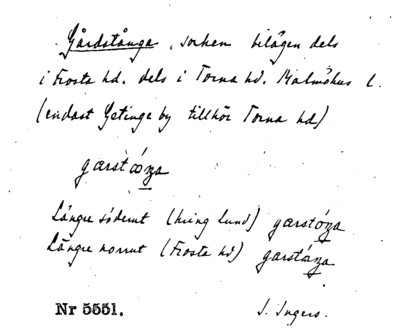 Gårdstånga, socken belägen dels
i Frosta hd. dels i Torna hd. Malmöhus l.
(endast Getinge by tillhör Torna hd)
Längre söderut (kring Lund)
Längre norrut (Frosta hd)
Nr 5551. I. Ingers.